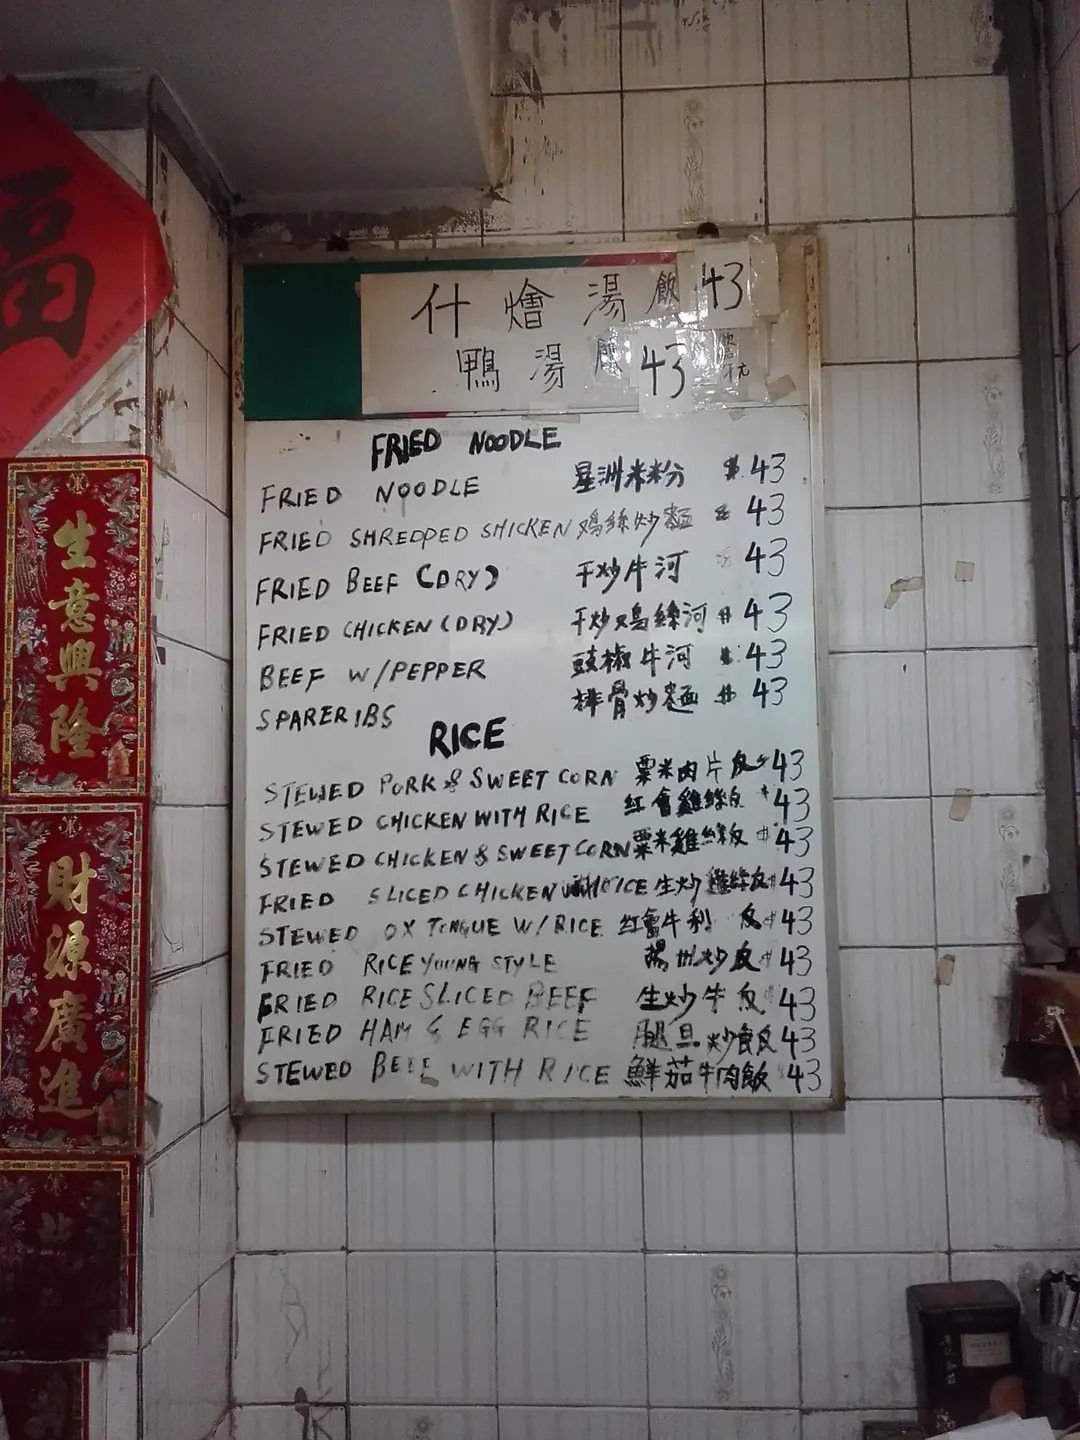 福
生意興隆
財源廣進
什燴湯飯 43
鴨湯 43
FRIED NOODLE
FRIED NOODLE 星洲米粉 $43
FRIED SHREDPED SHICKEN 鸡絲炒麵 43
FRIED BEEF (DRY) 干炒牛河 43
FRIED CHICKEN (DRY) 干炒鸡絲河 $43
BEEF W/PEPPER 豉椒牛河 $43
SPARERIBS 排骨炒麵 $43
RICE
STEWED PORK & SWEET CORN 粟米肉片反 43
STEWED CHICKEN WITH RICE 紅會雞絲反 43
STEWED CHICKEN & SWEET CORN 粟米雞絲反 $43
FRIED SLICED CHICKEN 生炒雞絲反 $43
STEWED OX TONGUE W/RICE 紅會牛利反 $43
FRIED RICE YOUNG STYLE 楊州炒反 $43
FRIED RICE SLICED BEEF 生炒牛反 43
FRIED HAM & EGG RICE 腿旦炒食反 43
STEWED BEEF WITH RICE 鮮茄牛肉飯 43